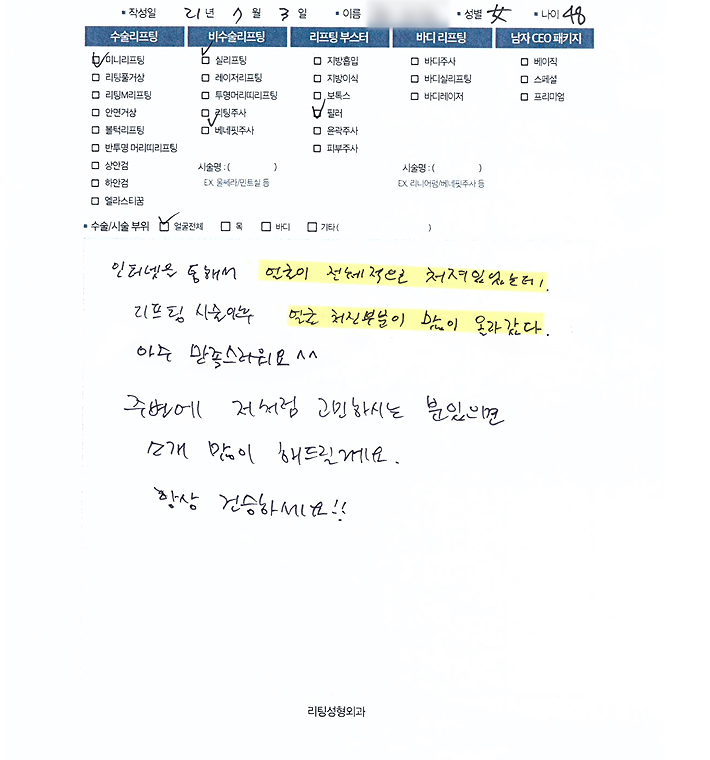 ▪ 작성일 21 년 7 월 3 일 ▪ 이름 ▪ 성별 女 ▪ 나이 48
수술리프팅 비수술리프팅 리프팅 부스터 바디 리프팅 남자 CEO 패키지
미니리프팅 실리프팅 지방흡입 바디주사 베이직
리팅풀거상 레이저리프팅 지방이식 바디실리프팅 스페셜
리팅M리프팅 투명머리띠리프팅 보톡스 바디레이저 프리미엄
안면거상 리팅주사 필러
볼턱리프팅 베네핏주사 윤곽주사
반투명 머리띠리프팅 피부주사
상안검 시술명 : ( ) 시술명 : ( )
하안검 EX. 울쎄라/민트실 등 EX. 리니어펌/베네핏주사 등
엘라스티꿈
▪ 수술/시술 부위 얼굴전체 목 바디 기타 ( )
인터넷을 통해서 얼굴이 전체적으로 처져있었는데,
리프팅 시술이후 얼굴 처진부분이 많이 올라갔다.
아주 만족스러워요^^
주변에 저처럼 고민하시는 분있으면
소개 많이 해드릴게요.
항상 건승하세요!!
리팅성형외과